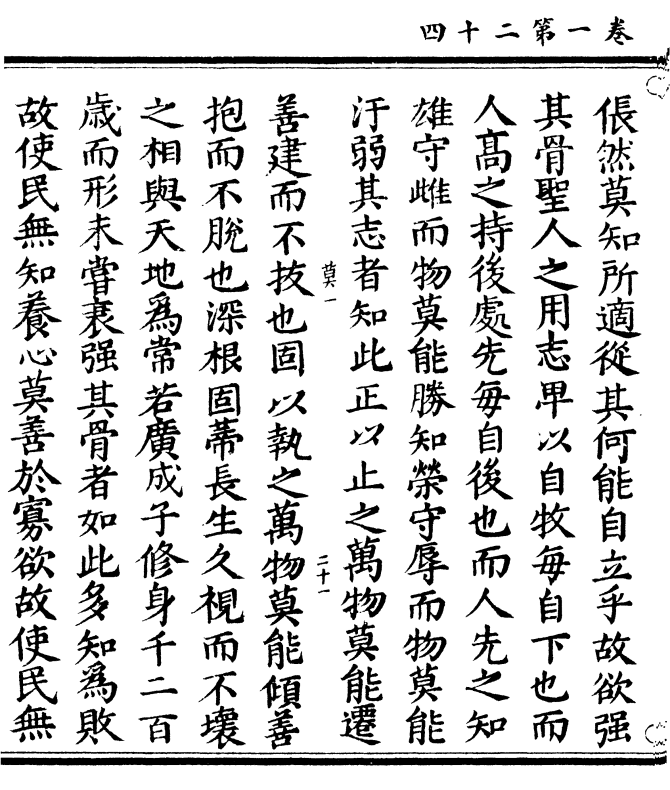 卷一第二十四
倀然莫知所適從其何能自立乎故欲强
其骨聖人之用志𤰞以自牧毎自下也而
人髙之持後處先毎自後也而人先之知
雄守雌而物莫能勝知榮守辱而物莫能
汙弱其志者知此正以止之萬物莫能遷
莫一
二十一
善建而不抜也固以執之萬物莫能傾善
抱而不脫也深根固蔕長生久視而不壞
之相與天地爲常若廣成子修身千二百
歲而形未嘗衰强其骨者如此多知爲敗
故使民無知養心莫善於寡欲故使民無